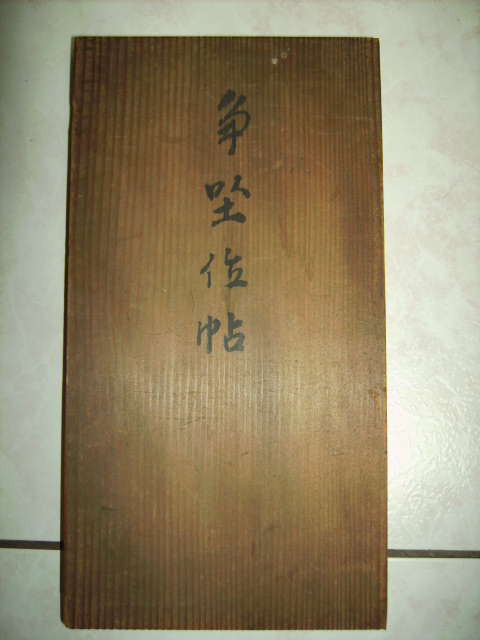 争坐位帖